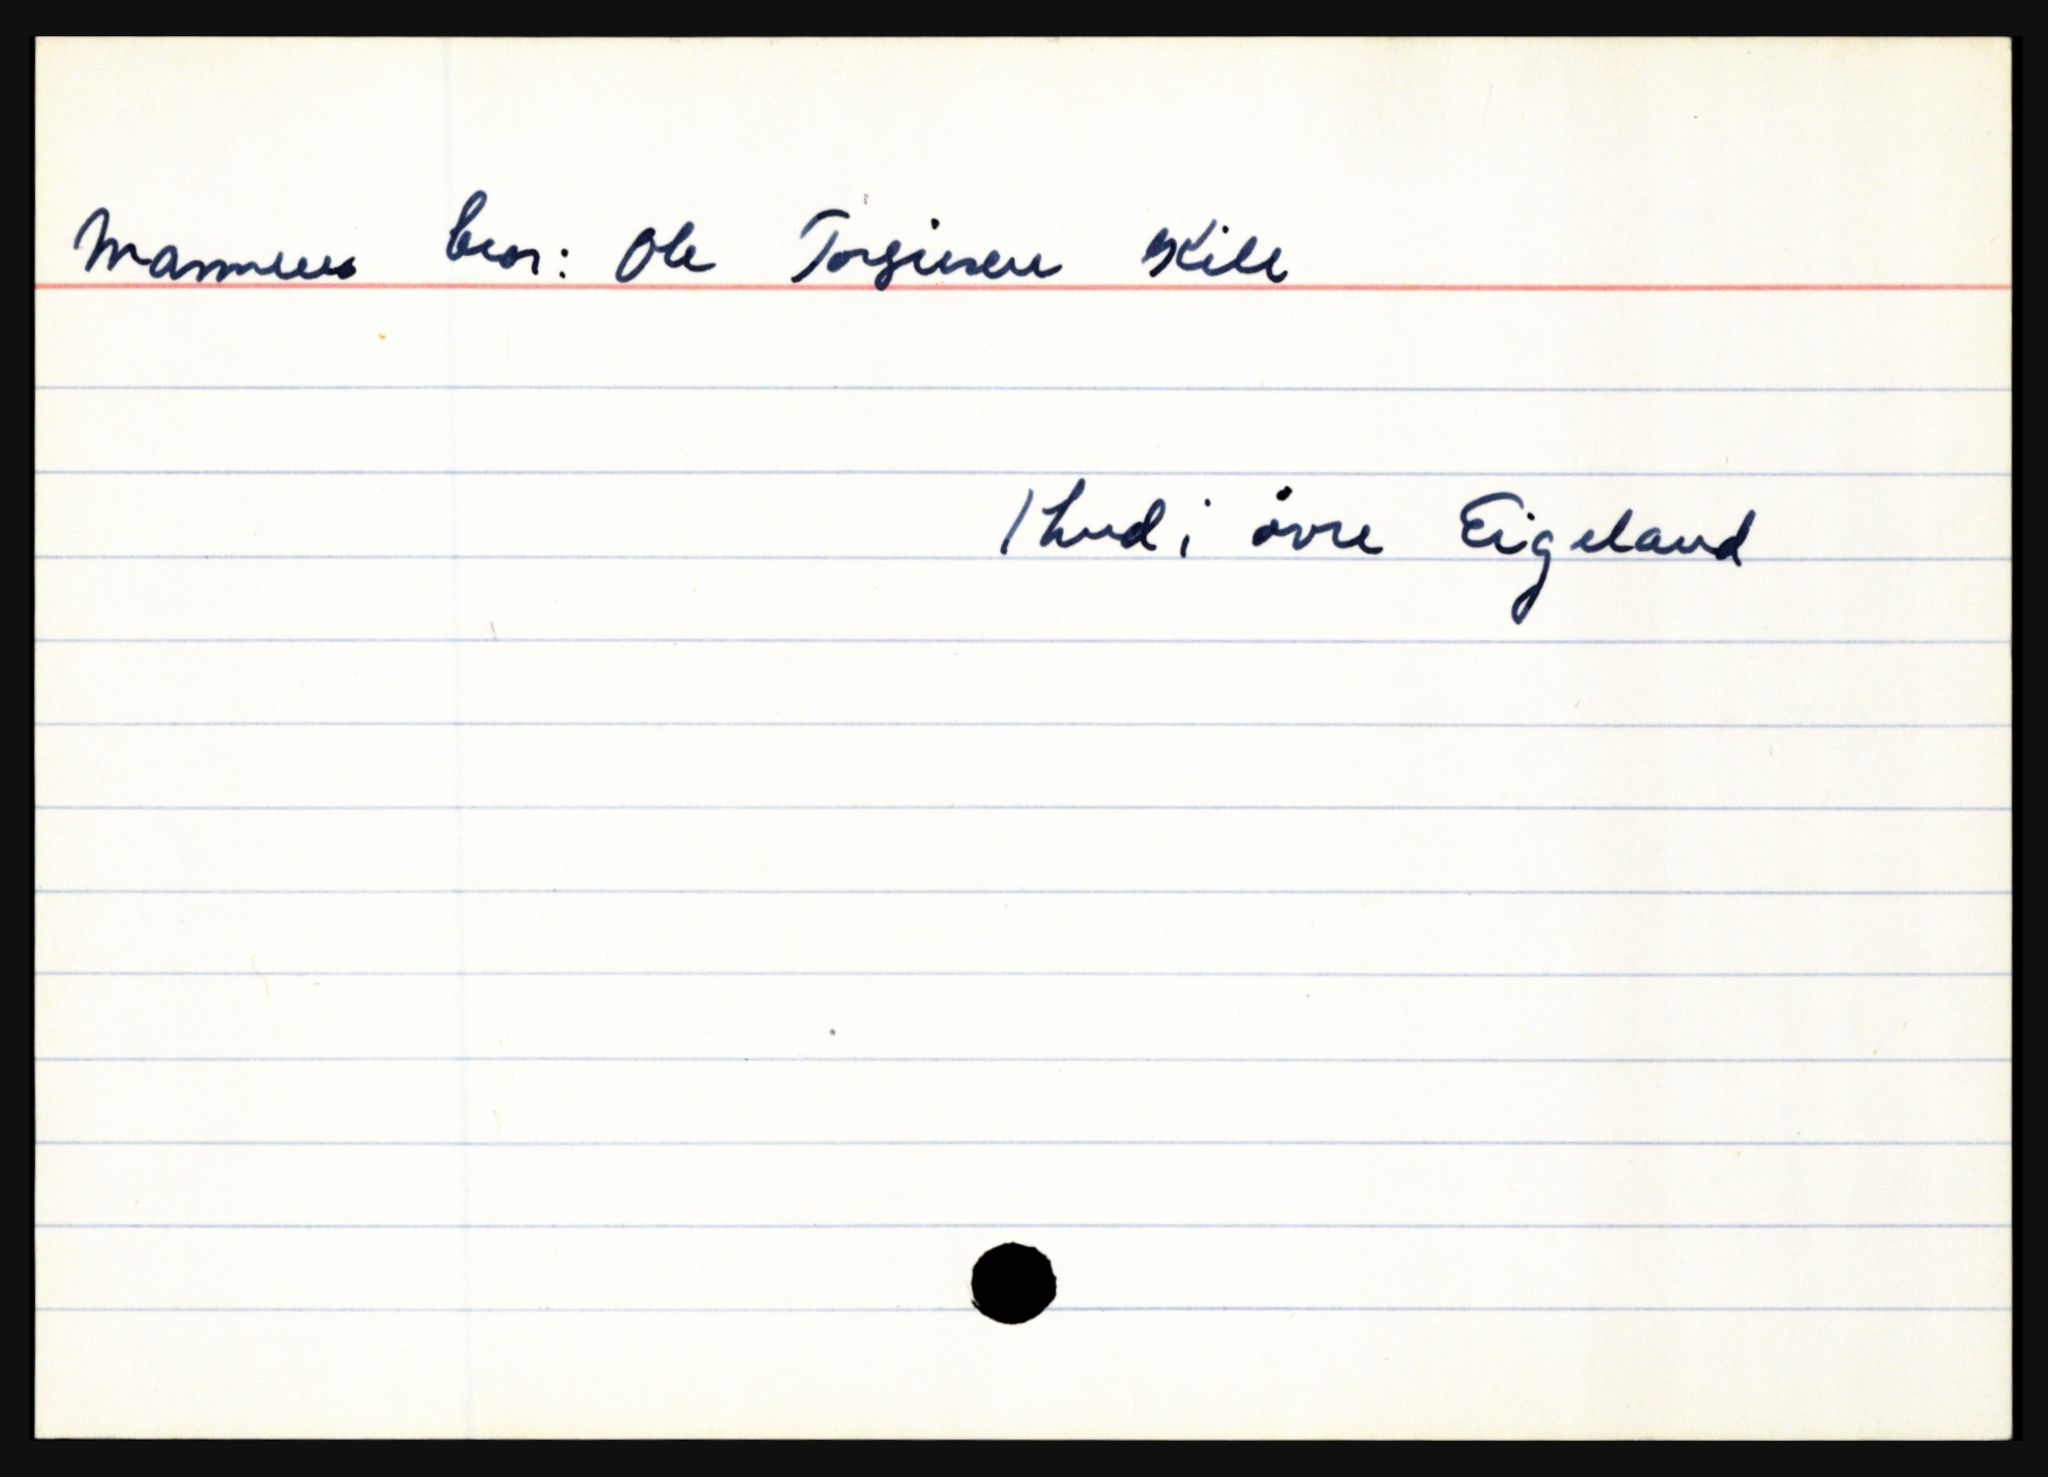 Mannens bror: Ole Torginsen Kile
1 hud i øvre Eigeland